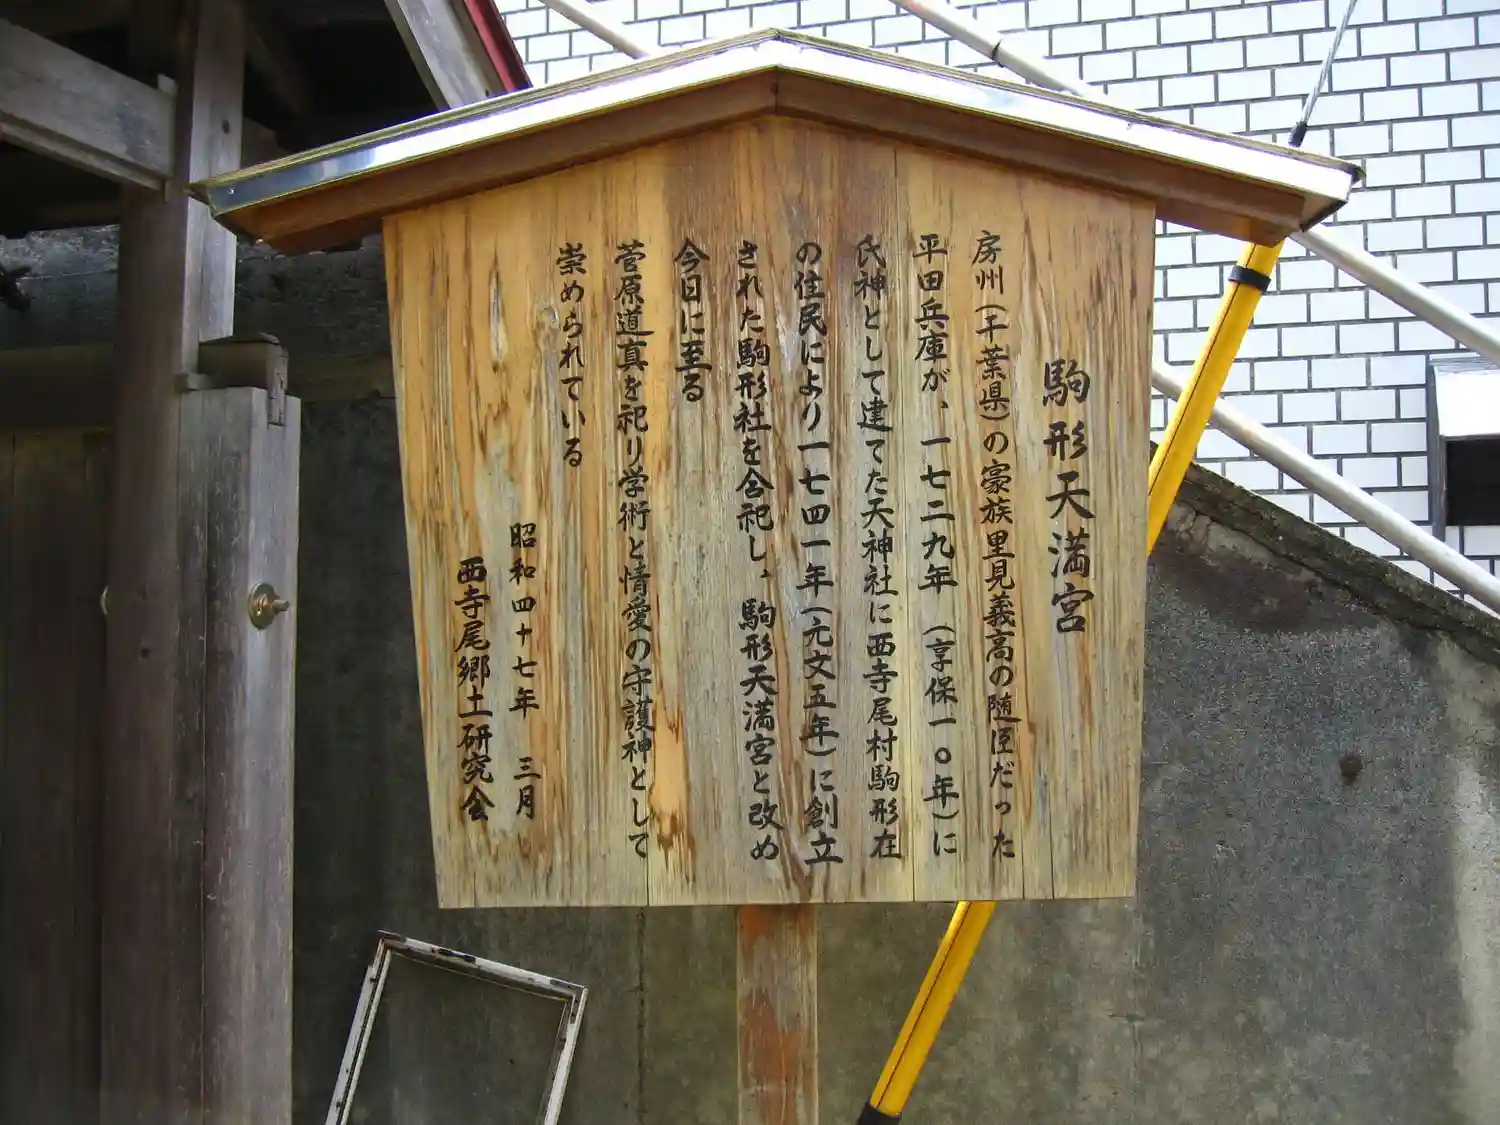 駒形天満宮
房州(千葉県)の豪族里見義高の随臣だった
平田兵庫が、一七二九年(享保一〇年)に
氏神として建てた天神社に西寺尾村駒形在
の住民により一七四一年(元文五年)に創立
された駒形社を合祀し、駒形天満宮と改め
今日に至る
菅原道真を祀り学術と情愛の守護神として
崇められている
昭和四十七年 三月
西寺尾郷土研究会